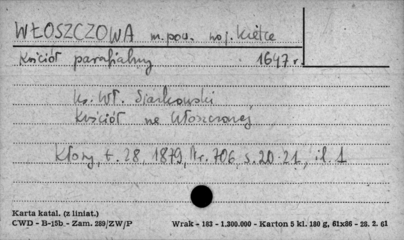 WŁOSZCZOWA m. pow. woj. Kielce
Kościół parafialny 1647 r.
ks. Wł. Siarkowski
Kościół we Włoszczowej
Kłosy, t. 28, 1879, Nr. 706, s. 20-21, il. 1
Karta katal. (z liniat.)
CWD - B-15b - Zam. 289/ZW/P Wrak - 163 - 1.300.000 - Karton 5 kl. 180 g, 61x86 - 28. 2. 61